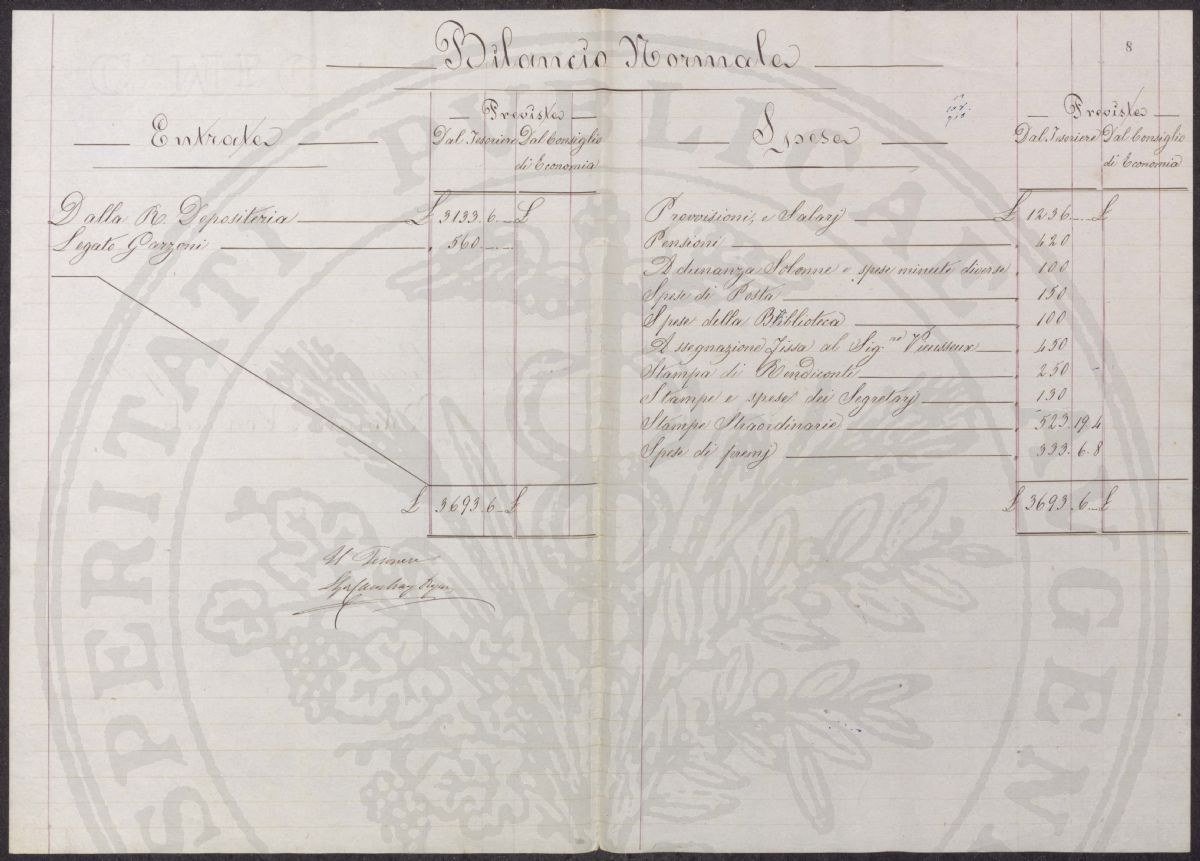 8
Bilancio Normale
Entrate
Previste
Dal Tesoriere Dal Consiglio
di Economia
Dalla R. Depositeria £ 3133. 6. — £
Legato Garzoni " 560. — . —
£ 3693. 6. — £
Il Tesoriere
Spese
Previste
Dal Tesoriere Dal Consiglio
di Economia
Provvisioni, e Salarj £ 1236. — . — £
Pensioni " 420
Adunanza Solenne e spese minute diverse " 100
Spese di Posta " 150
Spese della Biblioteca " 100
Assegnazione fissa al Sig.re Vieusseux " 450
Stampa di Rendiconti " 250
Stampe e spese dei Segretarj " 130
Stampe Straordinarie " 523. 19. 4
Spese di premj " 333. 6. 8
£ 3693. 6. — £
PROSPERITATI PUBLICAE AUGENDAE